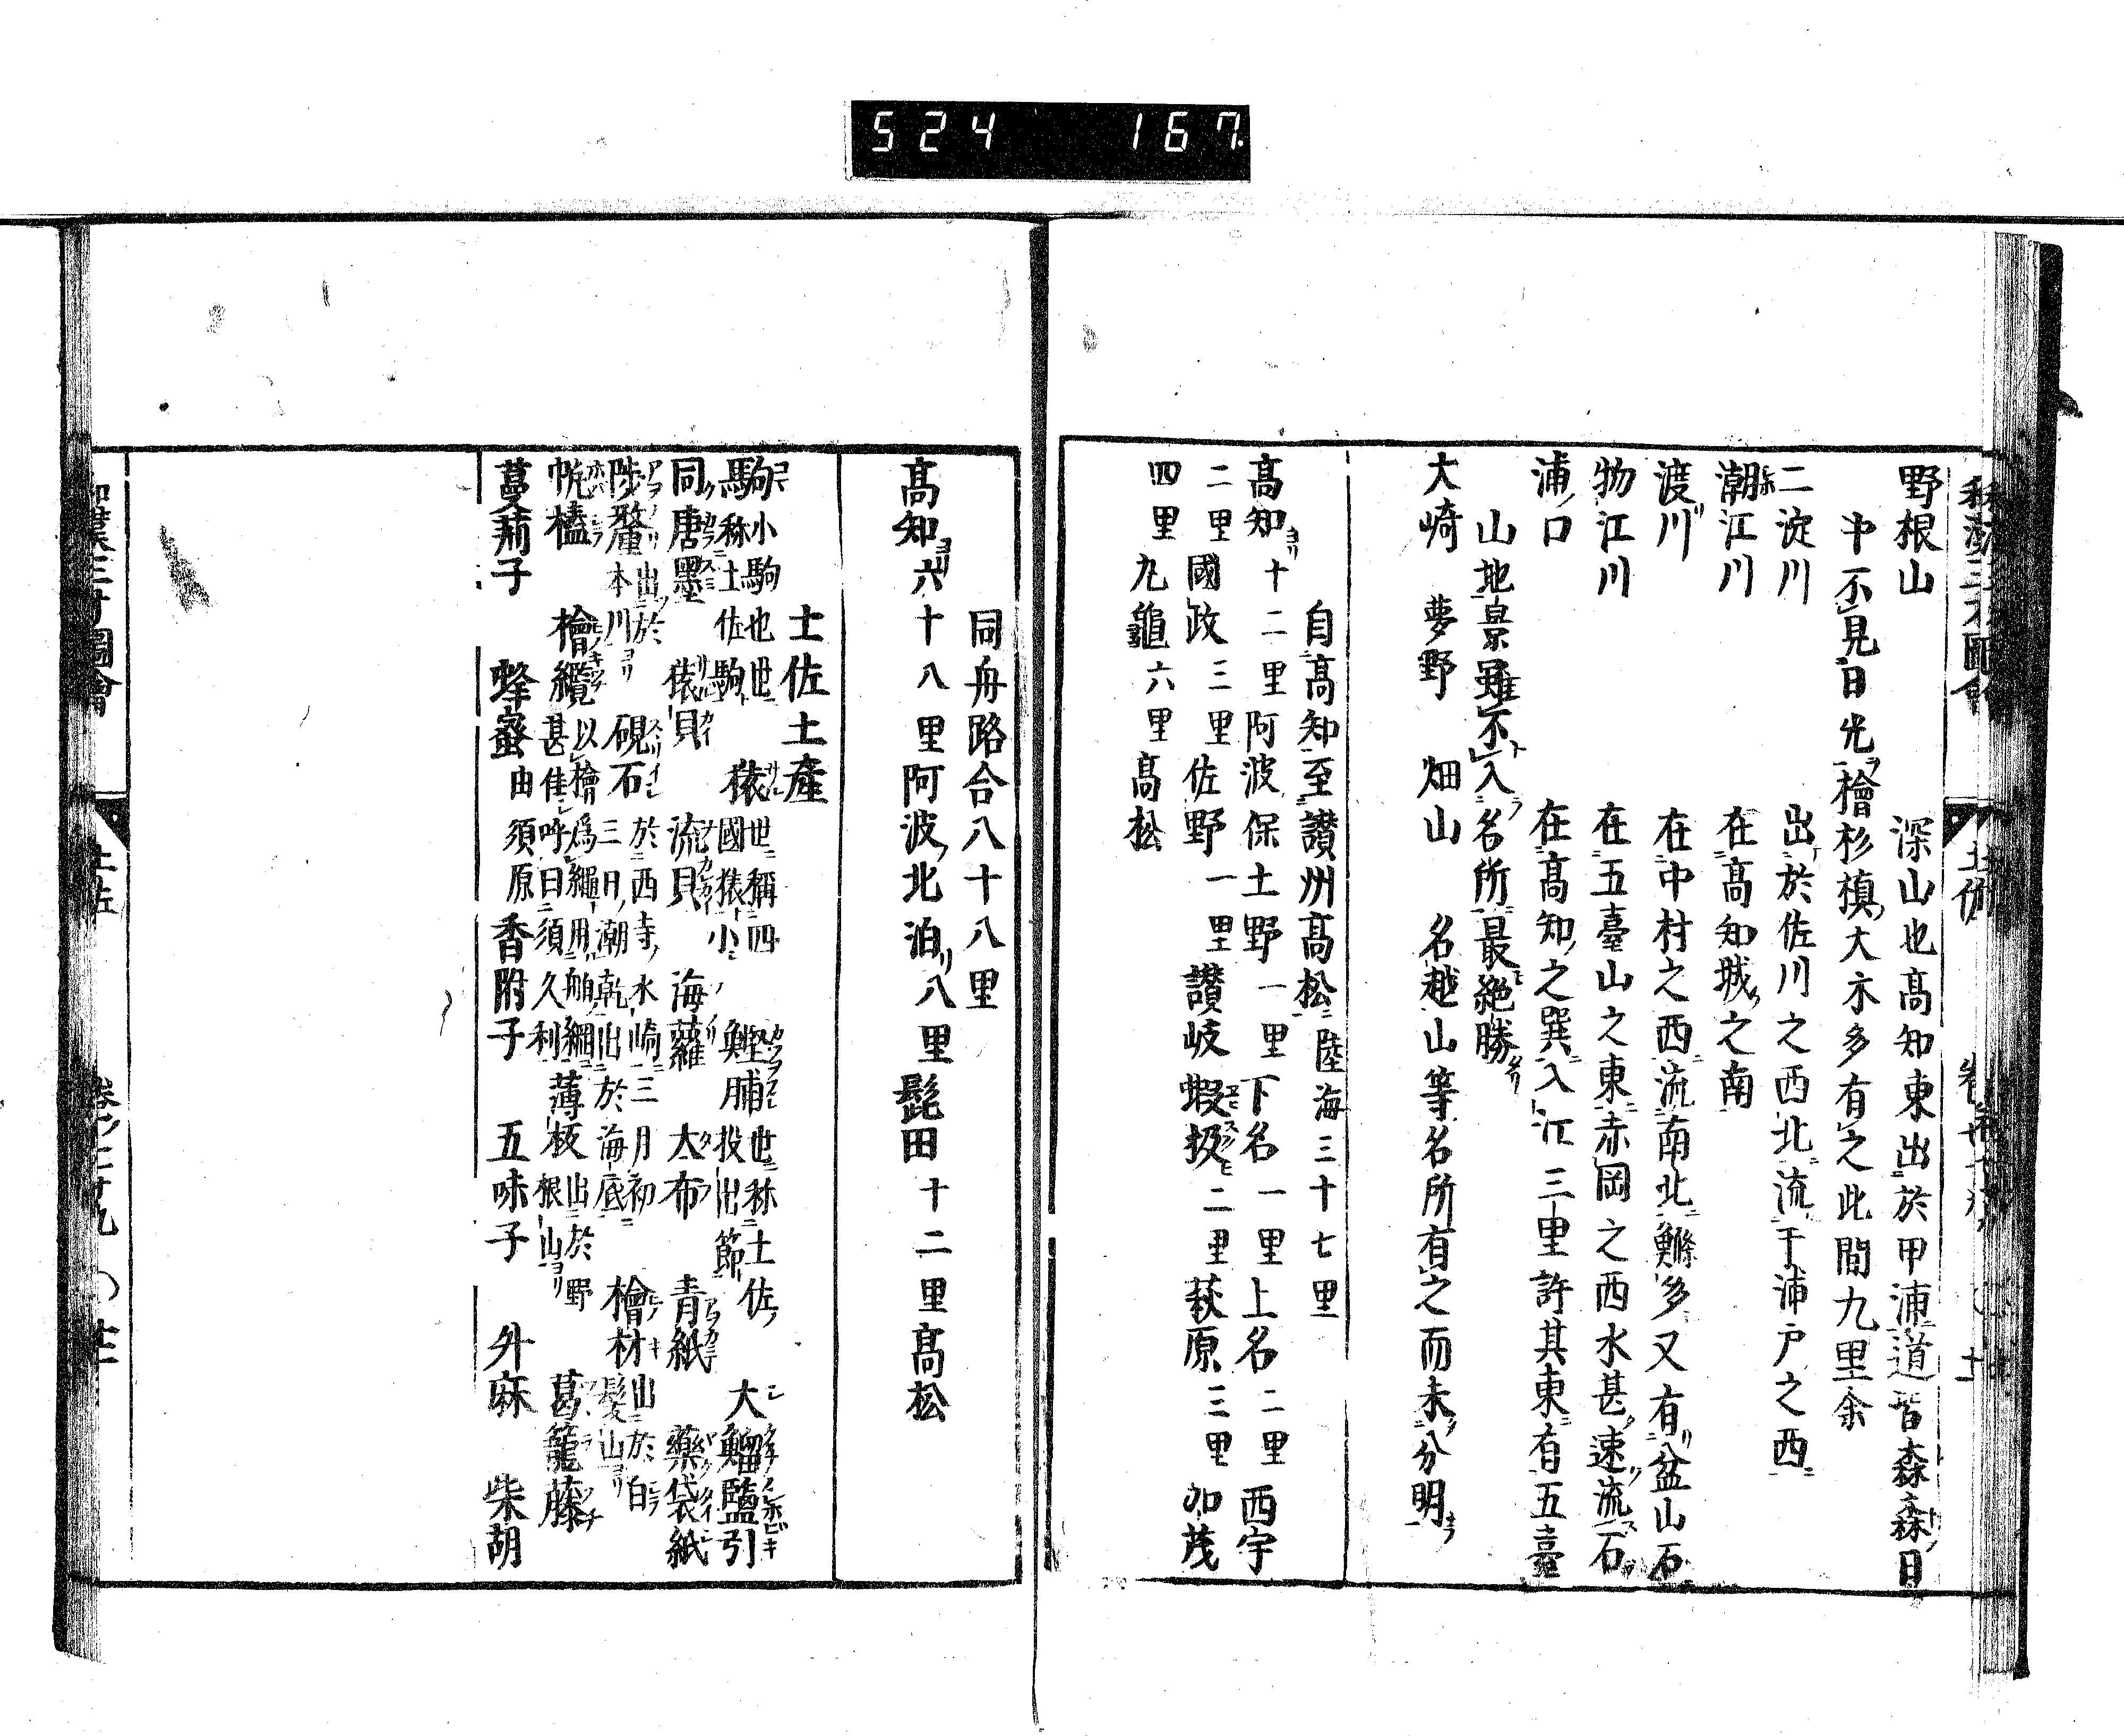 524 167
野根山 深山也高知東出於甲浦道皆森森日
中不見日光檜杉槙大木多有之此間九里余
二淀川 出於佐川之西北流于浦戸之西
潮江川 在高知城之南
渡川 在中村之西流南北鰷多又有盆山石
物江川 在五臺山之東赤岡之西水甚速流石
浦ノ口 在高知之巽入江三里許其東有五臺
山地景雖不入名所最絶勝
大崎 夢野 畑山 名越山等名所有之而未分明
自高知至讃州高松陸海三十七里
高知ヨリ十二里阿波保土野一里下名一里上名二里西宇
二里國政三里佐野一里讃岐蝦扱二里萩原三里加茂
四里九龜六里高松
同舟路合八十八里
高知ヨリ六十八里阿波ノ北泊リ八里髭田十二里高松
土佐土産
駒 小駒也世称土佐駒 猿 世稱四國猿小 鰹脯 世称土佐投出節 大鰡鹽引
同唐墨 猿貝 流貝 海蘿 大布 青紙 藥袋紙
陟釐 出於本川 硯石 於西寺水崎三月初三日潮乾出於海底 檜材 出於白髮山
帆檣 檜纜 以檜爲繩用舶綱甚佳呼曰須久利 薄板 出於野根山 葛籠藤
蔓荊子 蜂蜜 由須原 香附子 五味子 外麻 柴胡
土佐